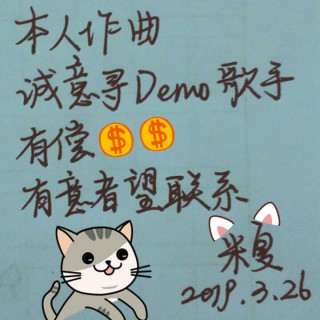 本人作曲
诚意寻Demo歌手
有偿
有意者望联系
米夏
2019.3.26